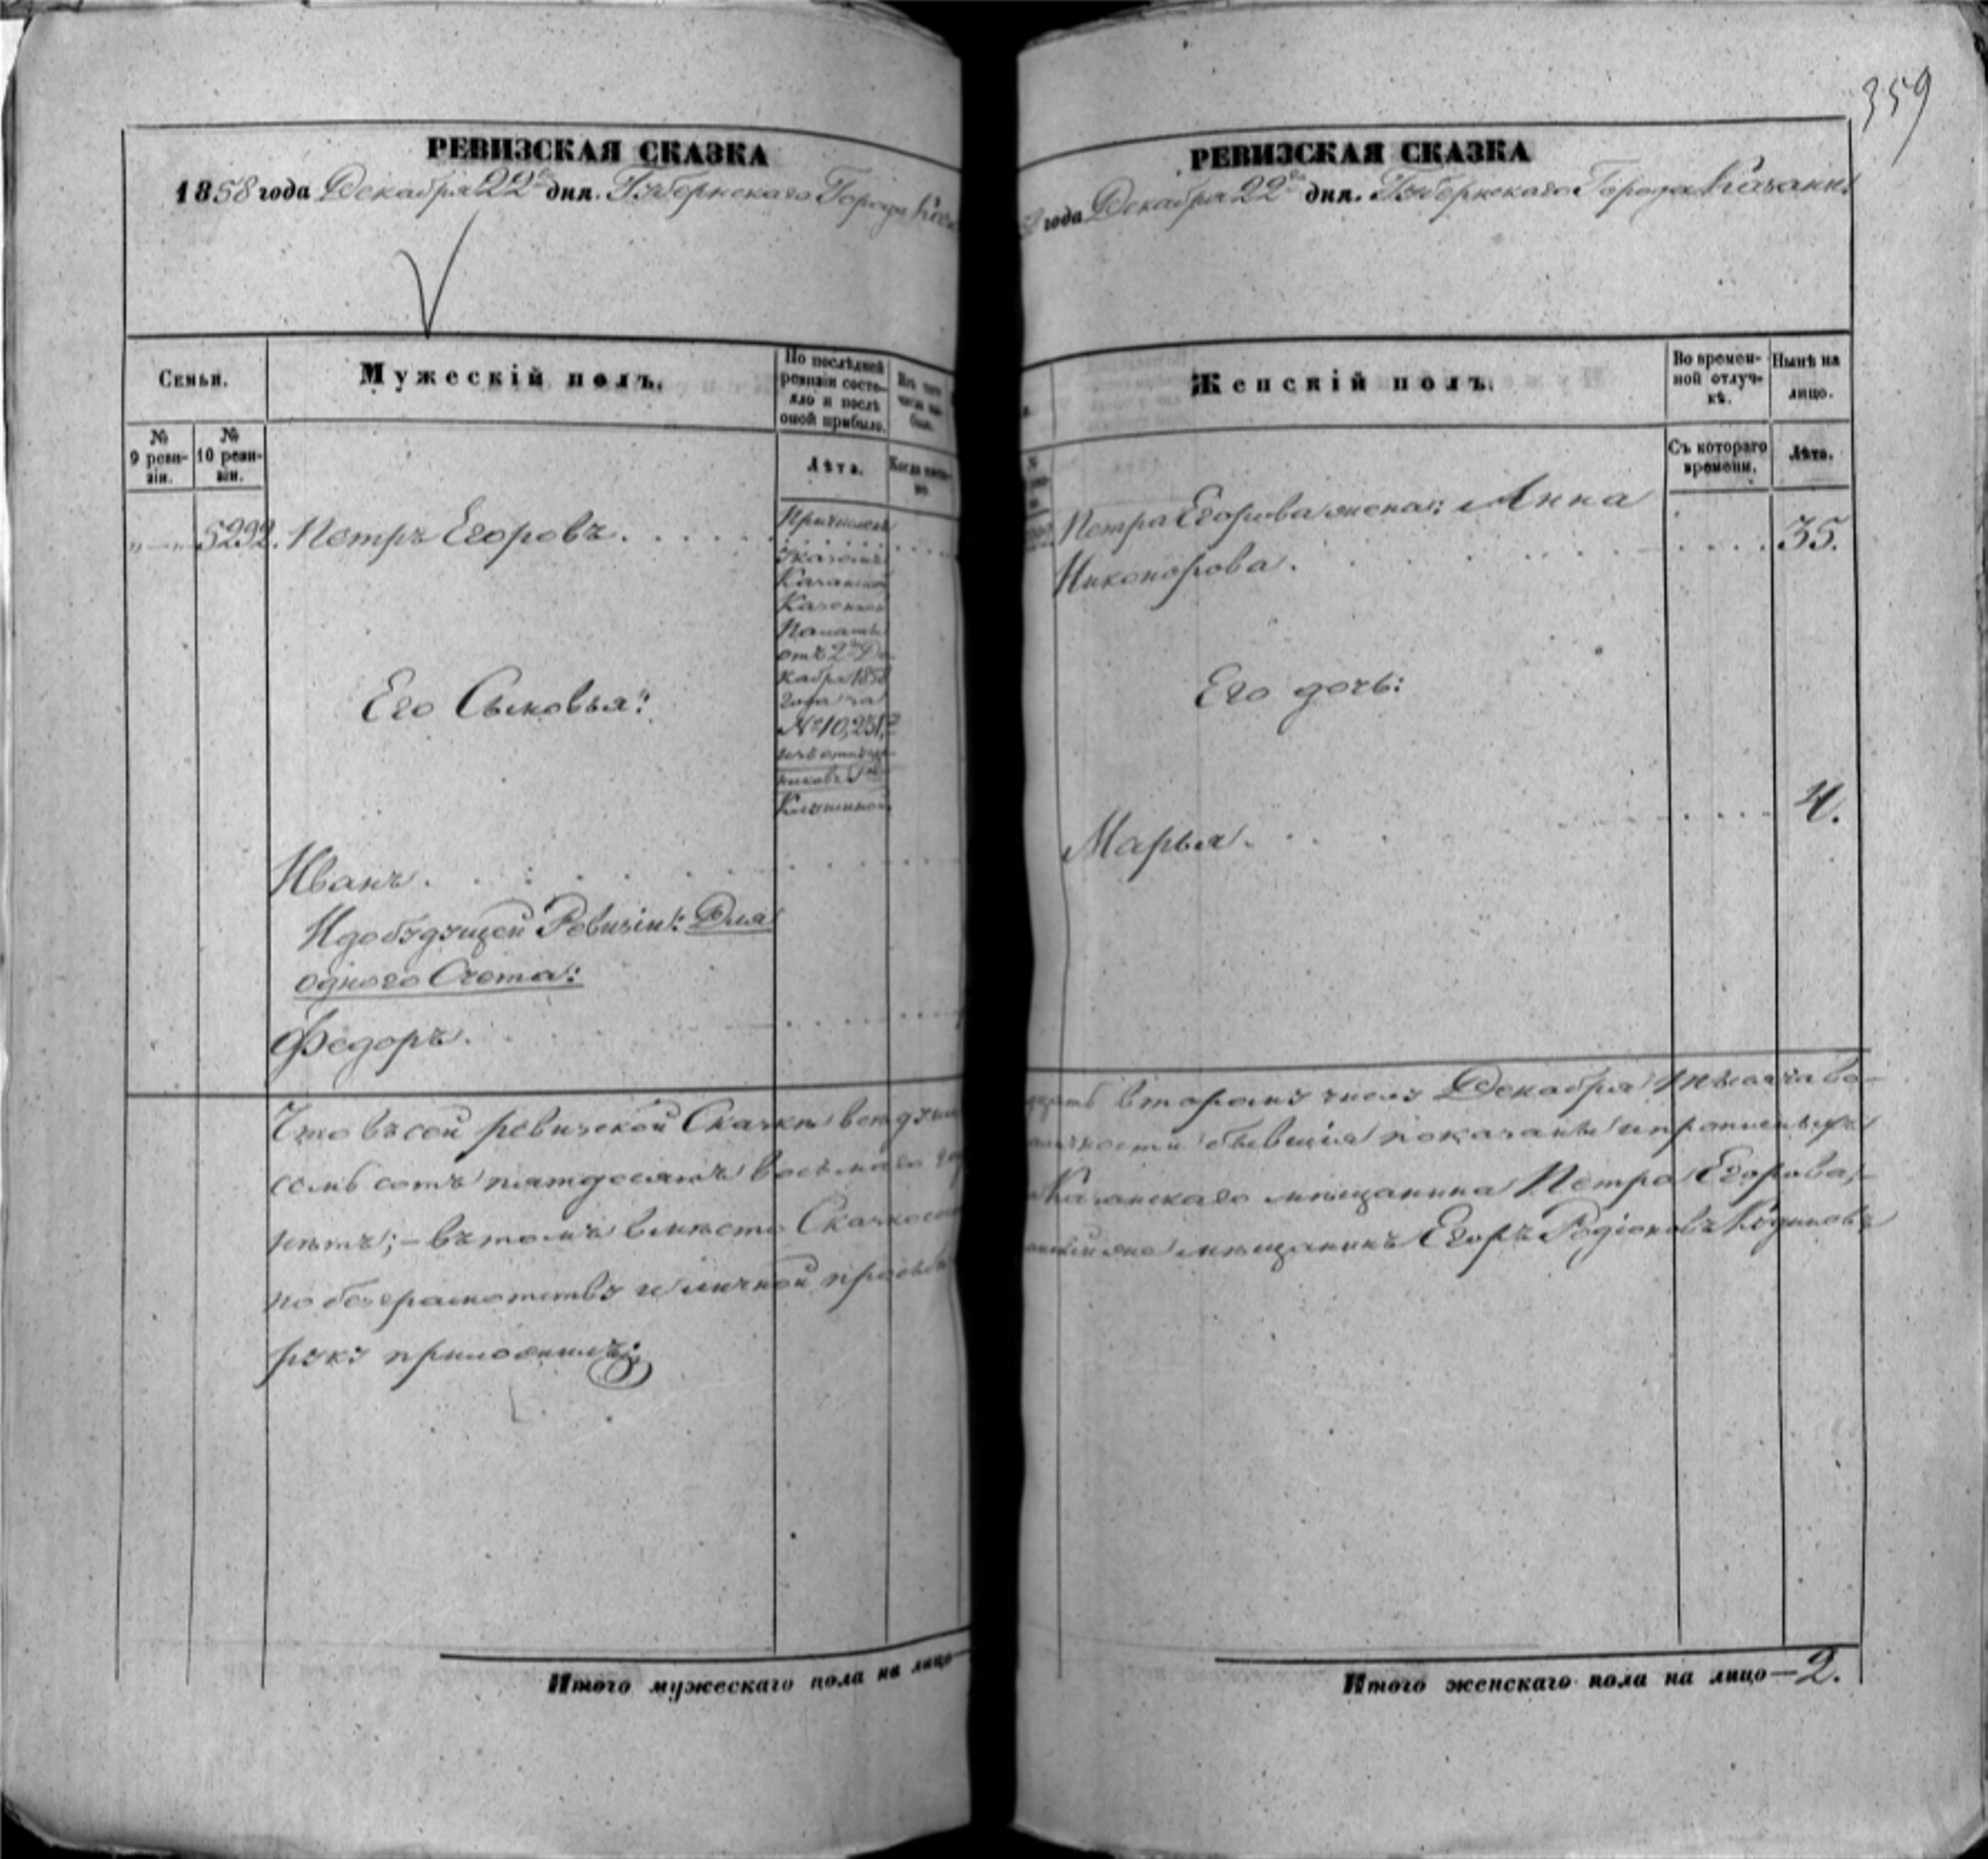 359
РЕВИЗСКАЯ СКАЗКА
1858 года Декабря 22го дня. Губернскаго Города
Семьи.
Мужескій полъ.
По послѣдней
ревизіи состо-
яло и послѣ
оной прибыло.
Изъ того
числа вы-
было.
№
9 реви-
зіи.
№
10 реви-
зіи.
Лѣта.
Когда имен-
но.
"—" 5292. Петръ Егоровъ.
Причисленъ
Указомъ
Казанской
Казенной
Палаты
отъ 2го Де-
кабря 1858
года за
№ 10,251,
Его Сыновья:
Иванъ.
И до будущей Ревизіи: Для
одного Счета:
Федоръ.
Что въ сей ревизской Сказкѣ
семь сотъ пятдесятъ восьмаго
нѣтъ; – въ томъ вмѣсто
по безграмотству и личной прозьбѣ
руку приложилъ:
Итого мужескаго пола на лицо
РЕВИЗСКАЯ СКАЗКА
года Декабря 22го дня. Губернскаго Города Казани
Женскій полъ.
Во времен-
ной отлуч-
кѣ.
Нынѣ на
лицо.
Съ котораго
времени.
Лѣта.
Петра Егорова жена: Анна
Никонорова. 35.
Его дочь:
Марья. 4.
второму числу Декабря мѣсяца
бывшія показаны и
Казанскаго мѣщанина Петра Егорова,
мѣщанинъ Егоръ Родіоновъ
Итого женскаго пола на лицо—2.